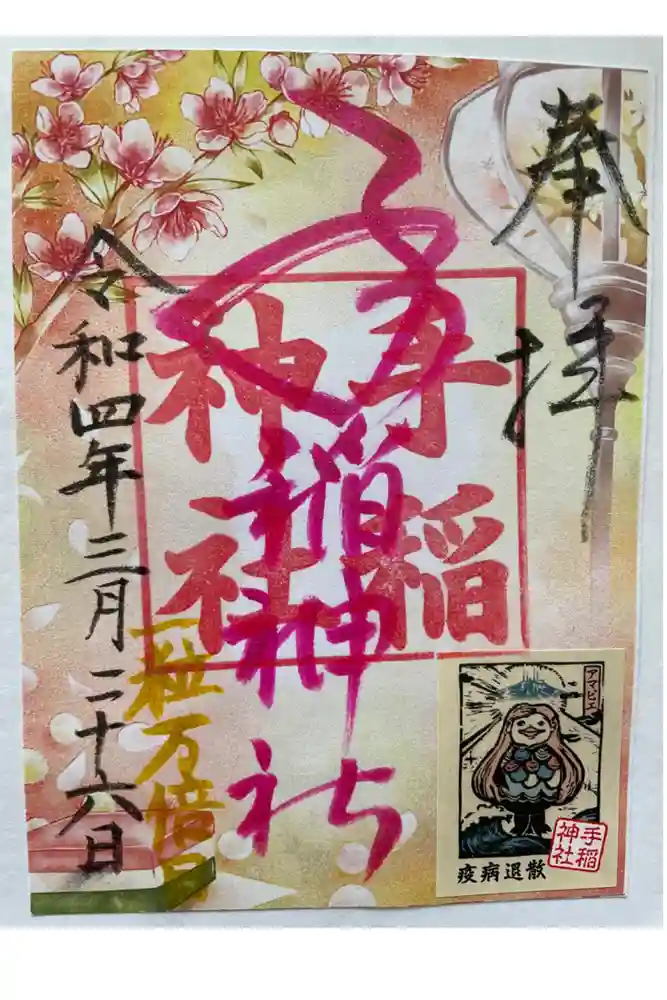 奉拝
手稲神社
手稲
神社
令和四年三月二十六日
一粒万倍日
アマビエ
疫病退散
手稲
神社